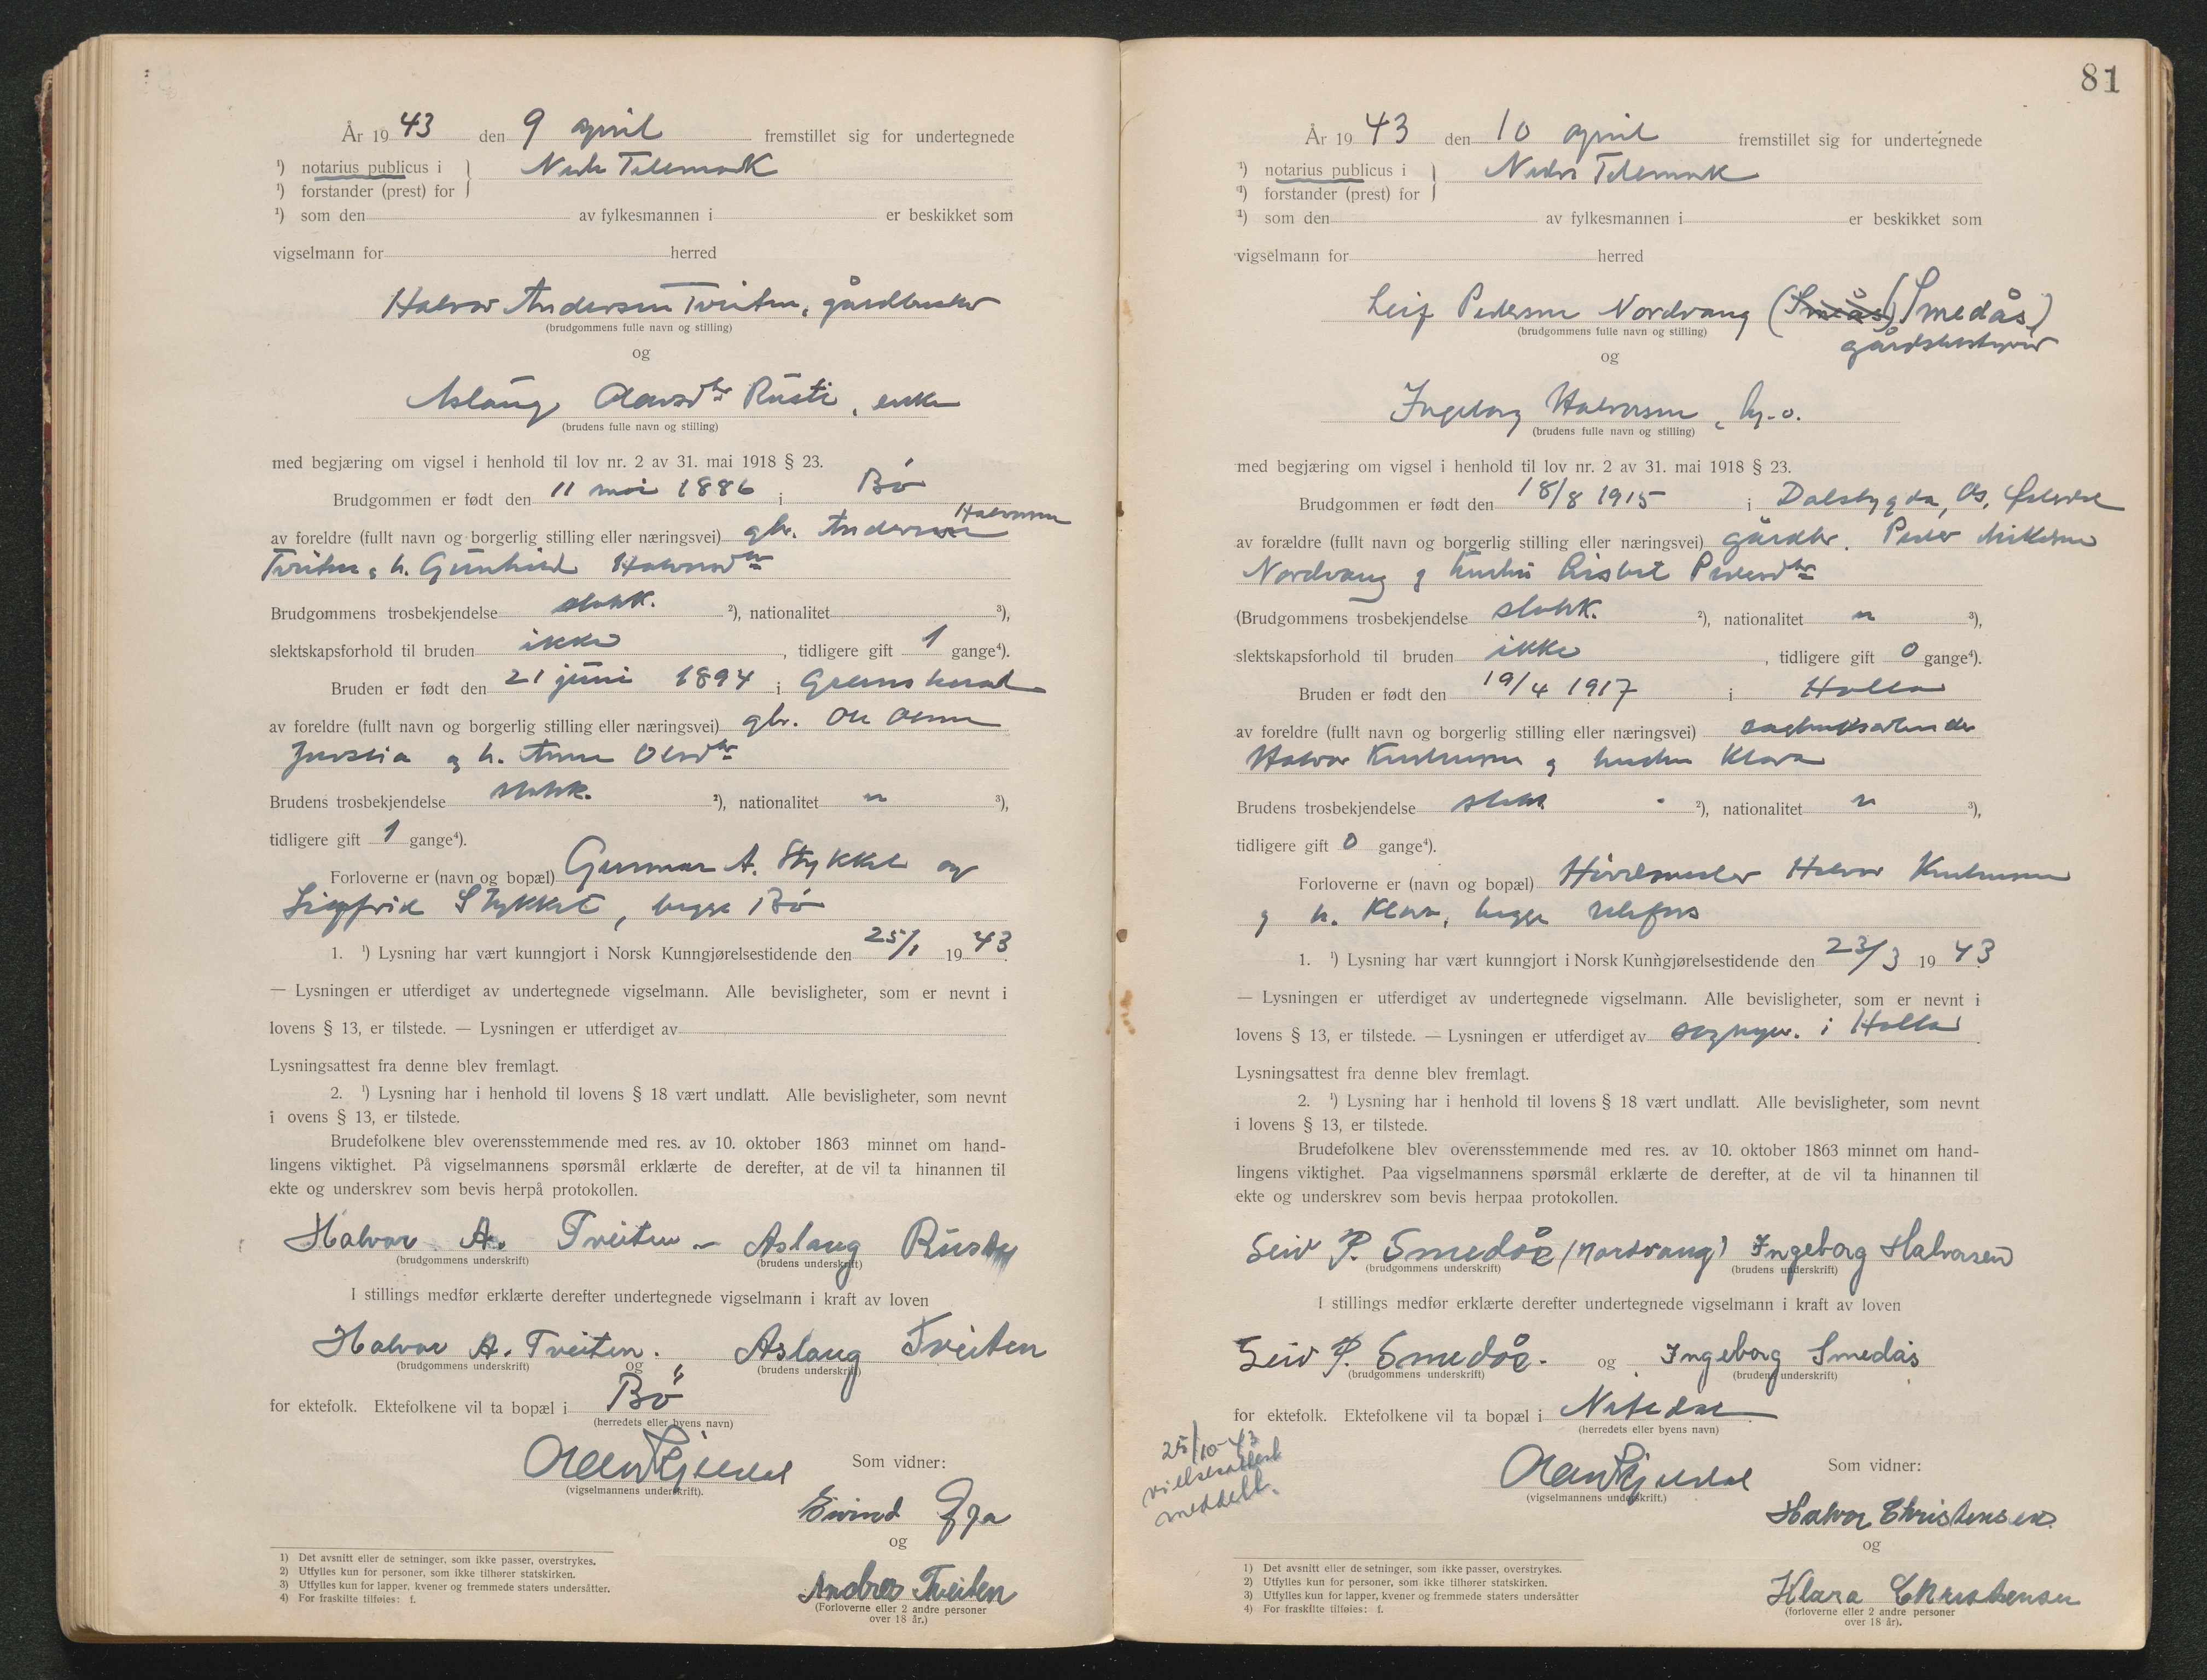 År 1943 den 9 april fremstillet sig for undertegnede
¹) notarius publicus i } Nedre Telemark
¹) forstander (prest) for
¹) som den av fylkesmannen i er beskikket som
vigselmann for herred
Halvor Andersen Tveiten, gårdbruker
(brudgommens fulle navn og stilling)
og
Aslaug Olavsdtr Rusti, enke
(brudens fulle navn og stilling)
med begjæring om vigsel i henhold til lov nr. 2 av 31. mai 1918 § 23.
Brudgommen er født den 11 mai 1886 i Bø
av foreldre (fullt navn og borgerlig stilling eller næringsvei) gbr. Anders Halvorsen
Tveiten og h. Gunhild Halvorsdtr
Brudgommens trosbekjendelse statsk. ²), nationalitet ³),
slektskapsforhold til bruden ikke , tidligere gift 1 gange⁴).
Bruden er født den 21 juni 1894 i Gransherad
av foreldre (fullt navn og borgerlig stilling eller næringsvei) gbr. Ole Olsen
og h. Anne Olsdtr
Brudens trosbekjendelse statsk. ²), nationalitet n ³),
tidligere gift 1 gange⁴).
Forloverne er (navn og bopæl) Gunnar A. Stykket og
Sigfrid Stykket, begge Bø
1. ¹) Lysning har vært kunngjort i Norsk Kunngjørelsestidende den 25/1 1943.
— Lysningen er utferdiget av undertegnede vigselmann. Alle bevisligheter, som er nevnt i
lovens § 13, er tilstede. — Lysningen er utferdiget av
Lysningsattest fra denne blev fremlagt.
2. ¹) Lysning har i henhold til lovens § 18 vært undlatt. Alle bevisligheter, som nevnt
i ovens § 13, er tilstede.
Brudefolkene blev overensstemmende med res. av 10. oktober 1863 minnet om hand-
lingens viktighet. På vigselmannens spørsmål erklærte de derefter, at de vil ta hinannen til
ekte og underskrev som bevis herpå protokollen.
Halvor A. Tveiten – Aslaug Rusti
(brudgommens underskrift) (brudens underskrift)
I stillings medfør erklærte derefter undertegnede vigselmann i kraft av loven
Halvor A. Tveiten. Aslaug Tveiten
(brudgommens underskrift) og (brudens underskrift)
for ektefolk. Ektefolkene vil ta bopæl i Bø
(herredets eller byens navn)
Som vidner:
(vigselmannens underskrift).
Eivind
og
Andres Tveiten
(Forloverne eller 2 andre personer
over 18 år.)
1) Det avsnitt eller de setninger, som ikke passer, overstrykes.
2) Utfylles kun for personer, som ikke tilhører statskirken.
3) Utfylles kun for lapper, kvener og fremmede staters undersåtter.
4) For fraskilte tilføies: f.
81
År 1943 den 10 april fremstillet sig for undertegnede
¹) notarius publicus i } Nedre Telemark
¹) forstander (prest) for
¹) som den av fylkesmannen i er beskikket som
vigselmann for herred
Leif Pedersen Nordvang (Smeås) Smedås)
gårdsbestyrer
(brudgommens fulle navn og stilling)
og
Ingeborg Halvorsen,
(brudens fulle navn og stilling)
med begjæring om vigsel i henhold til lov nr. 2 av 31. mai 1918 § 23.
Brudgommen er født den 18/8 1915 i Dalsbygda, Os, Østerdal
av forældre (fullt navn og borgerlig stilling eller næringsvei) gårdbr. Peder Mikkelsen
Nordvang og hustru Lisbet Pedersdtr
(Brudgommens trosbekjendelse statsk. ²), nationalitet n ³),
slektskapsforhold til bruden ikke , tidligere gift 0 gange⁴).
Bruden er født den 19/4 1917 i Holla
av foreldre (fullt navn og borgerlig stilling eller næringsvei) sagbruksarbeider
Halvor Kristensen og hustru Klara
Brudens trosbekjendelse statsk. ²), nationalitet n ³),
tidligere gift 0 gange⁴).
Forloverne er (navn og bopæl) Høvlmester Halvor Kristensen
og h. Klara, begge Ulefoss
1. ¹) Lysning har vært kunngjort i Norsk Kunngjørelsestidende den 23/3 1943.
— Lysningen er utferdiget av undertegnede vigselmann. Alle bevisligheter, som er nevnt i
lovens § 13, er tilstede. — Lysningen er utferdiget av sognepr. i Holla
Lysningsattest fra denne blev fremlagt.
2. ¹) Lysning har i henhold til lovens § 18 vært undlatt. Alle bevisligheter, som nevnt
i lovens § 13, er tilstede.
Brudefolkene blev overensstemmende med res. av 10. oktober 1863 minnet om hand-
lingens viktighet. Paa vigselmannens spørsmål erklærte de derefter, at de vil ta hinannen til
ekte og underskrev som bevis herpaa protokollen.
Leiv P. Smedås (Nordvang) Ingeborg Halvorsen
(brudgommens underskrift) (brudens underskrift)
I stillings medfør erklærte derefter undertegnede vigselmann i kraft av loven
Leiv P. Smedås. og Ingeborg Smedås
(brudgommens underskrift) (brudens underskrift)
for ektefolk. Ektefolkene vil ta bopæl i
(herredets eller byens navn)
25/10-43
vielsesattest
meddelt.
Som vidner:
(vigselmannens underskrift.)
Halvor Christensen.
og
Klara Christensen
(forloverne eller 2 andre personer
over 18 år).
1) Det avsnitt eller de setninger, som ikke passer, overstrykes.
2) Utfylles kun for personer, som ikke tilhører statskirken.
3) Utfylles kun for lapper, kvener og fremmede staters undersåtter
4) For fraskilte tilføies: f.